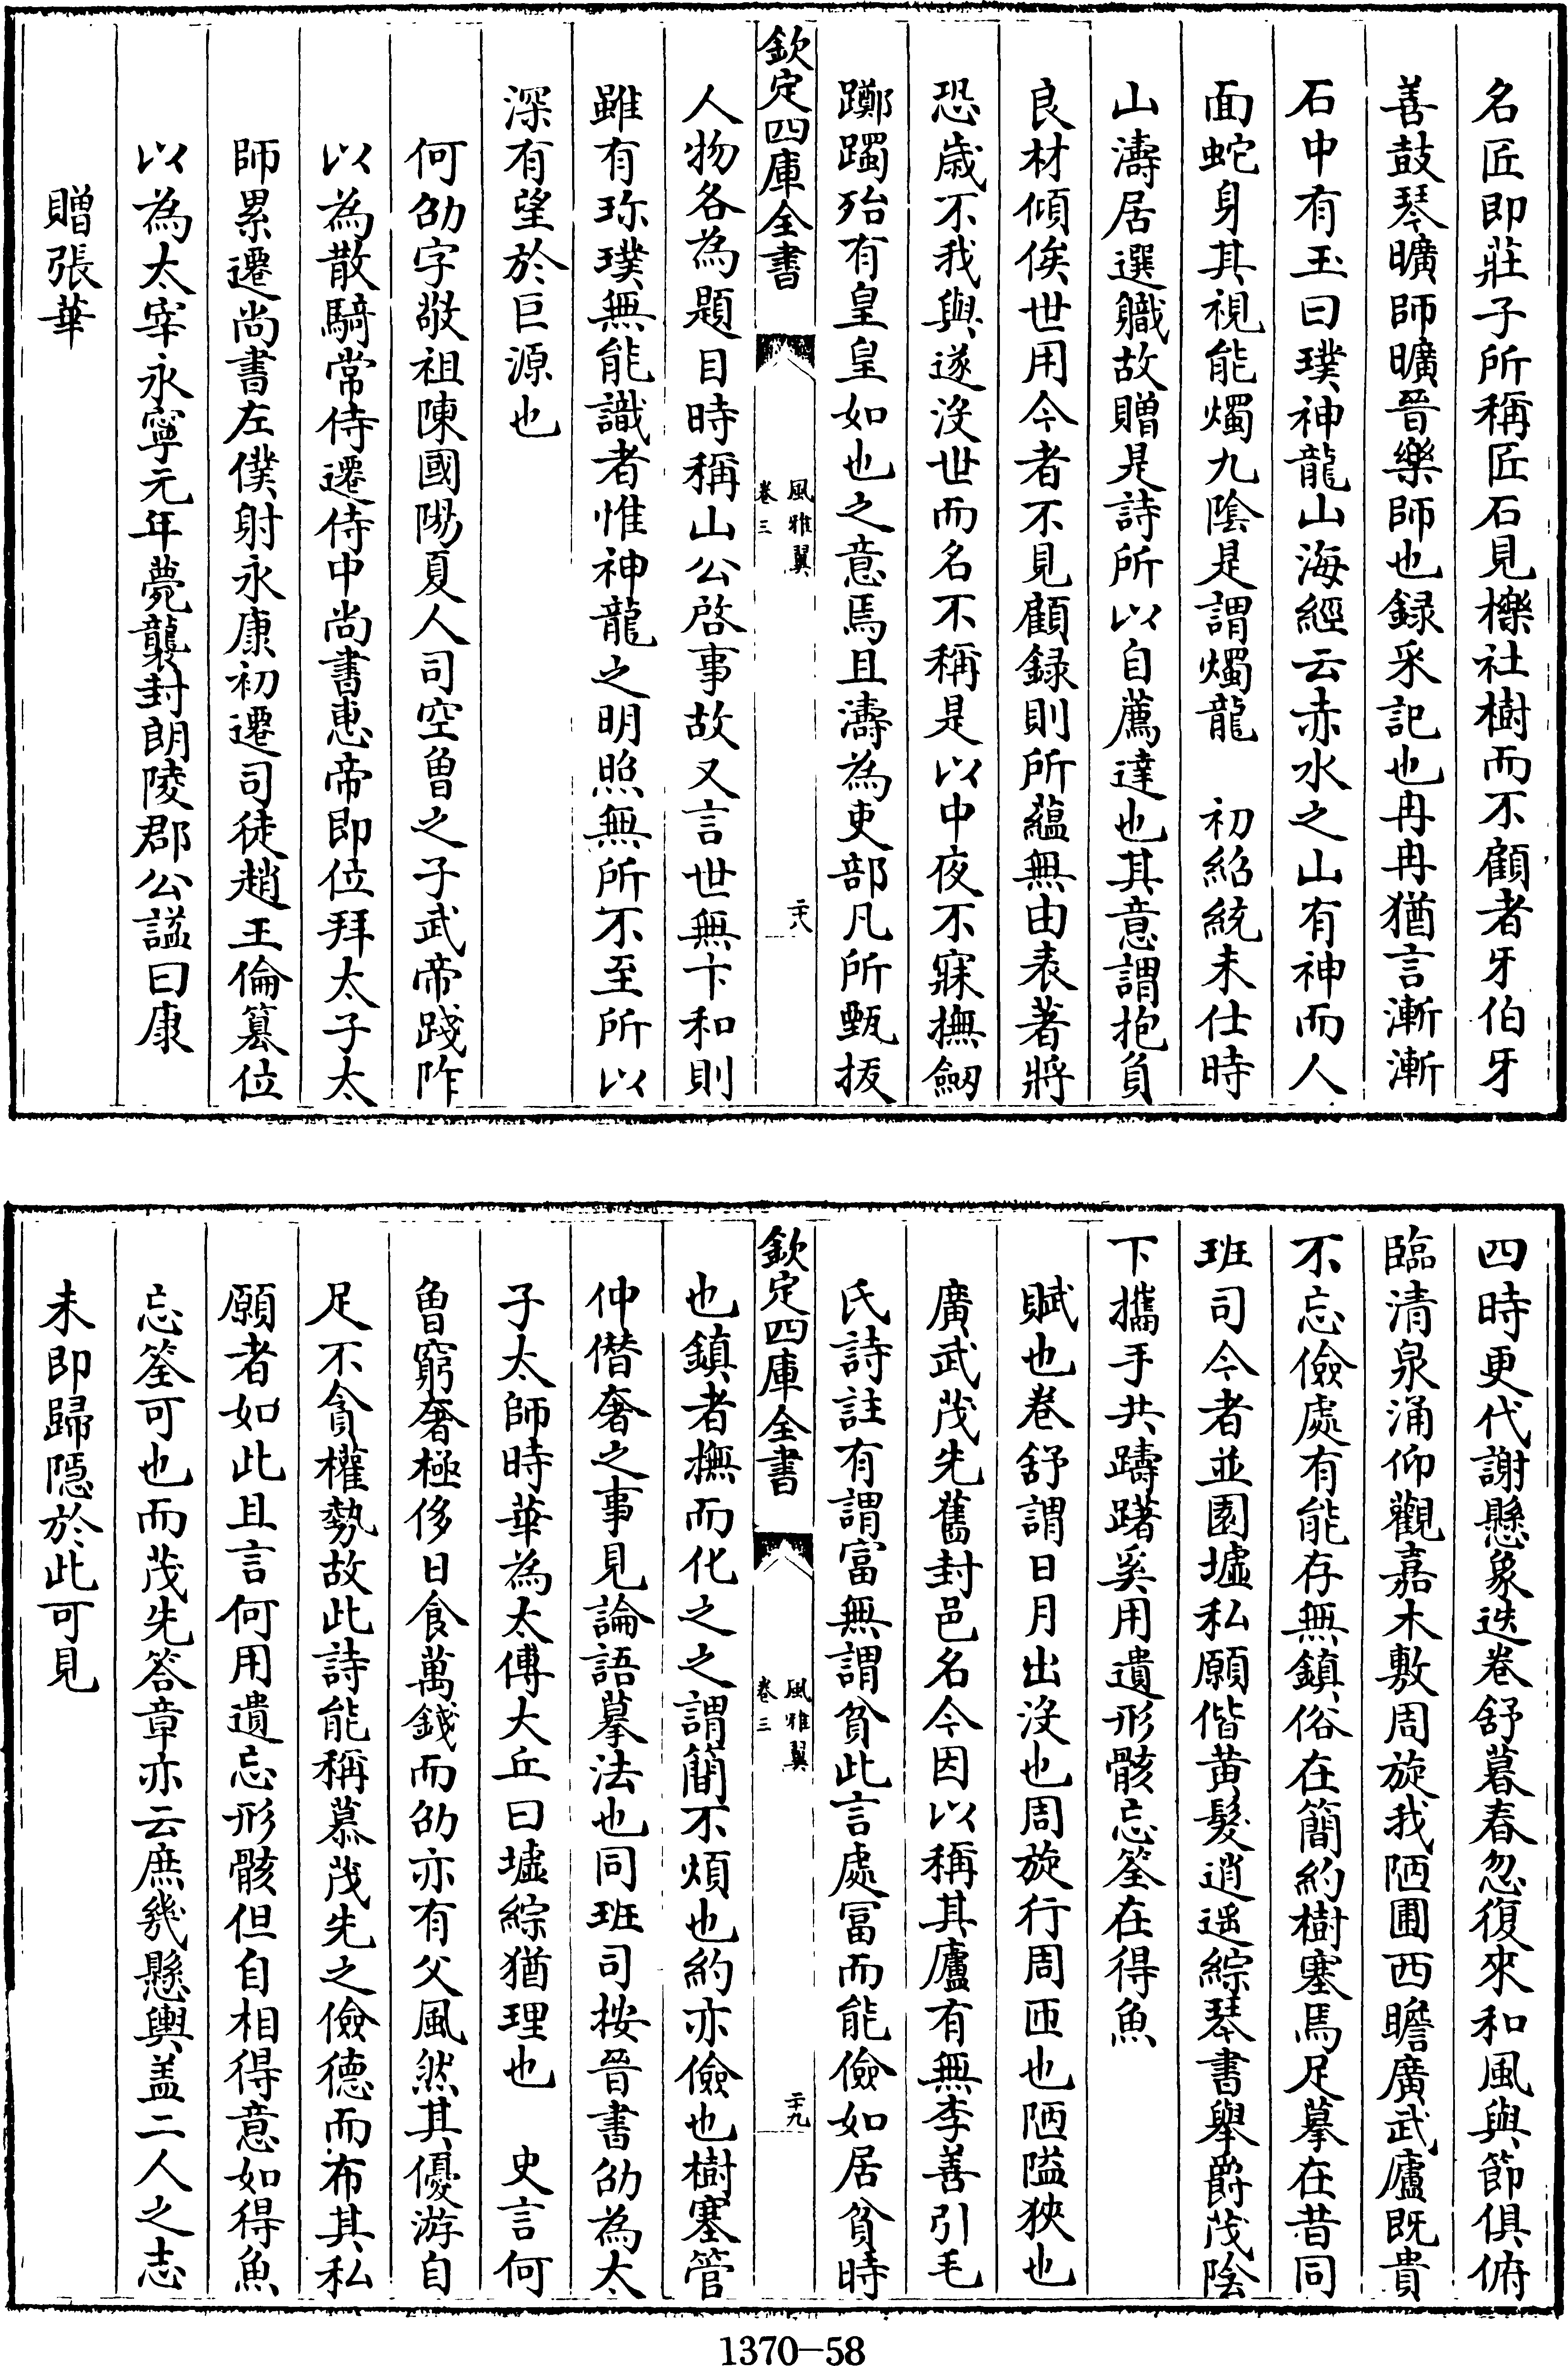 名匠即莊子所稱匠石見櫟社樹而不顧者牙伯牙
善鼓琴曠師曠晉樂師也録采記也冉冉猶言漸漸
石中有玉曰璞神龍山海經云赤水之山有神而人
面蛇身其視能燭九陰是謂燭龍　初紹統未仕時
山濤居選職故贈是詩所以自薦達也其意謂抱負
良材傾俟世用今者不見顧録則所蘊無由表著將
恐歲不我與遂没世而名不稱是以中夜不寐撫劒
躑躅殆有皇皇如也之意焉且濤為吏部凡所甄拔
欽定四庫全書
風雅翼
卷三
二十八
人物各為題目時稱山公啓事故又言世無卞和則
雖有珎璞無能識者惟神龍之明照無所不至所以
深有望於巨源也
何劭字敬祖陳國陽夏人司空曾之子武帝踐阼
以為散騎常侍遷侍中尚書惠帝即位拜太子太
師累遷尚書左僕射永康初遷司徒趙王倫簒位
以為太宰永寧元年薨襲封朗陵郡公諡曰康
贈張華
四時更代謝懸象迭卷舒暮春忽復來和風與節俱俯
臨清泉涌仰觀嘉木敷周旋我陋圃西瞻廣武廬既貴
不忘儉處有能存無鎮俗在簡約樹塞焉足摹在昔同
班司今者並園墟私願偕黄髮逍遥綜琴書舉爵茂陰
下攜手共躊躇奚用遺形骸忘筌在得魚
賦也卷舒謂日月出没也周旋行周匝也陋隘狹也
廣武茂先舊封邑名今因以稱其廬有無李善引毛
氏詩註有謂富無謂貧此言處冨而能儉如居貧時
欽定四庫全書
風雅翼
卷三
二十九
也鎮者撫而化之之謂簡不煩也約亦儉也樹塞管
仲僭奢之事見論語摹法也同班司按晉書劭為太
子太師時華為太傅大丘曰墟綜猶理也　史言何
曾窮奢極侈日食萬錢而劭亦有父風然其優游自
足不貪權勢故此詩能稱慕茂先之儉德而布其私
願者如此且言何用遺忘形骸但自相得意如得魚
忘筌可也而茂先答章亦云庶幾懸輿盖二人之志
未即歸隱於此可見
1370—58